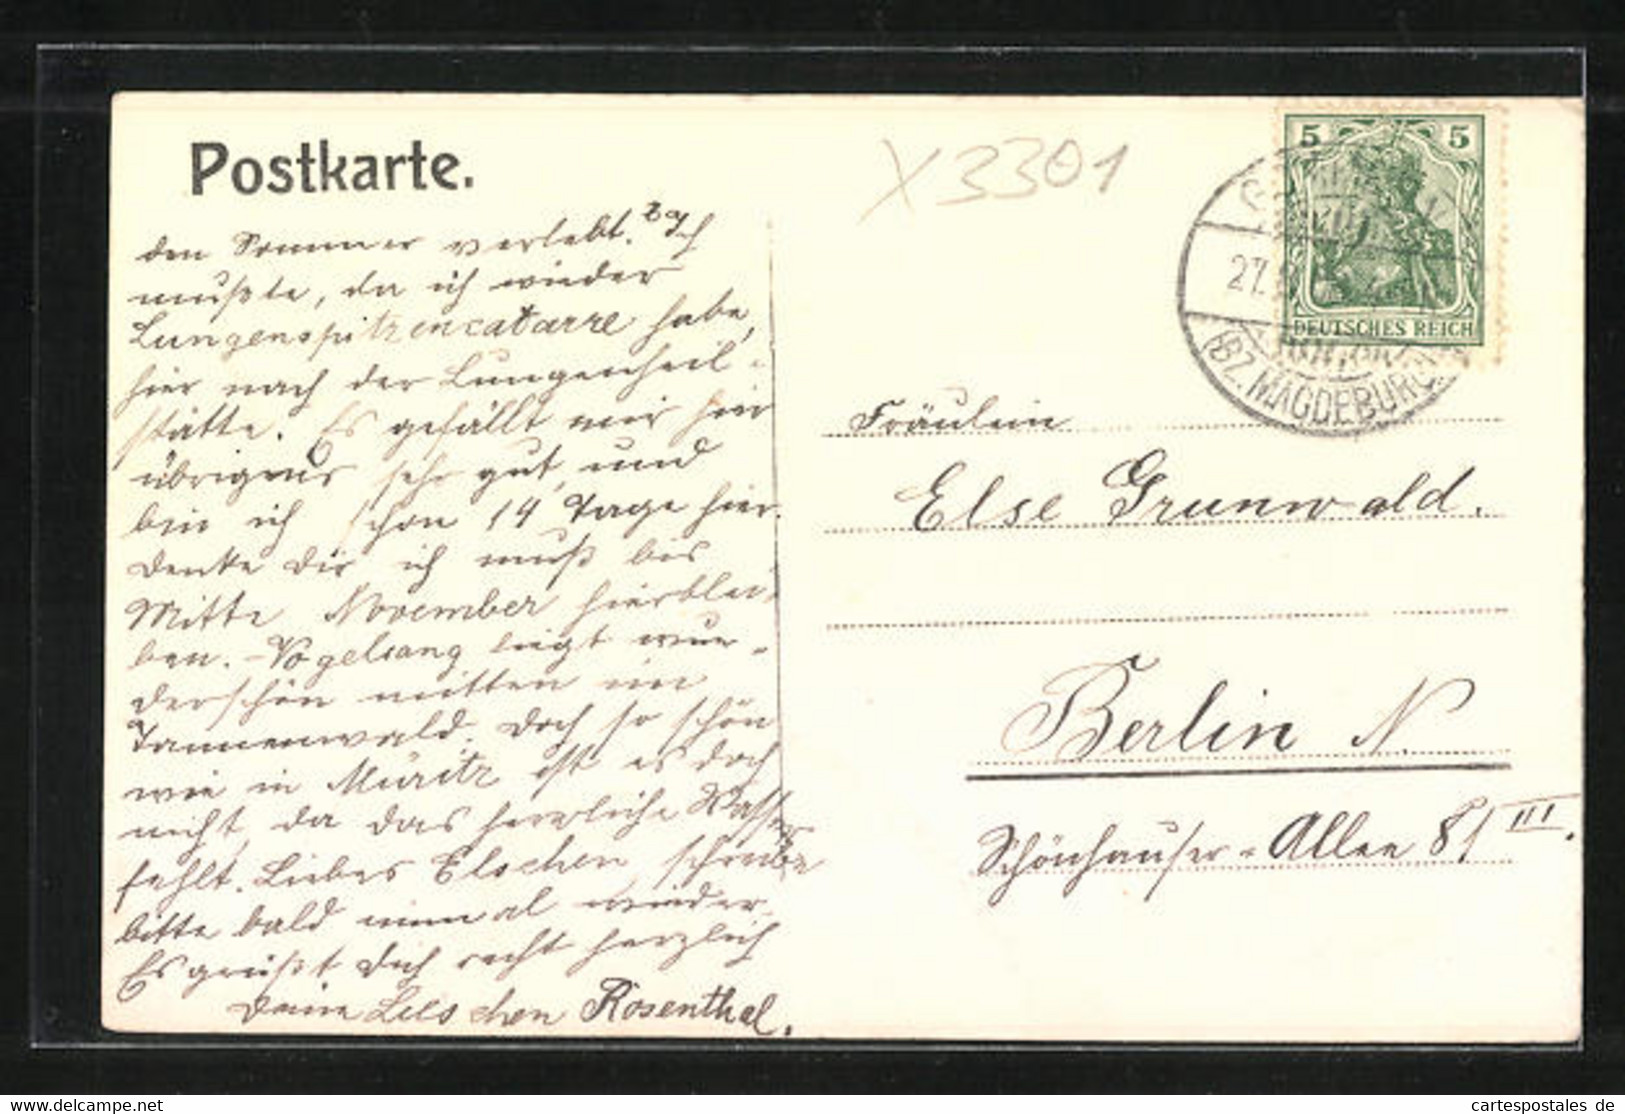 Postkarte.
X 3301
den Sommer verlebt. Ich
mußte, da ich wieder
Lungenspitzencatarre habe,
hier nach der Lungenheil-
stätte. Es gefällt mir hier
übrigens sehr gut, und
bin ich schon 14 Tage hier.
Denke Dir ich muß bis
Mitte November hierblei-
ben. – Vogelsang liegt wun-
derschön mitten im
Tannenwald. Doch so schön
wie in Müritz ist es doch
nicht, da das herrliche Wasser
fehlt. Liebes Elschen, schreibe
bitte bald einmal wieder.
Es grüßt Dich recht herzlich
Deine Lieschen Rosenthal.
5 5
DEUTSCHES REICH
27.
(BZ. MAGDEBURG)
Fräulein
Else Grunwald.
Berlin N.
Schönhauser-Allee 81 III.
www.delcampe.net
cartespostales de